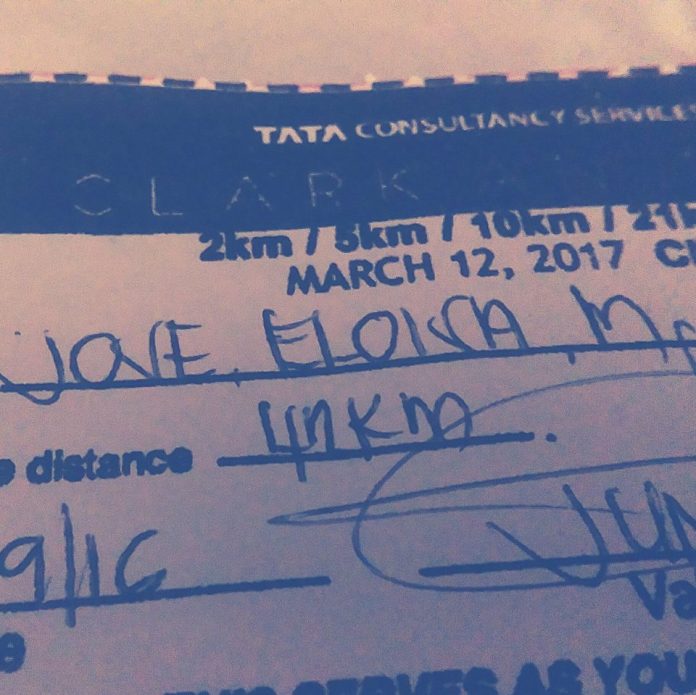 TATA CONSULTANCY SERVICES
CLARK
2km / 5km / 10km / 21
MARCH 12, 2017 C
ELOISA M
e distance 42KM.
9/16 JUN
Va
e
THIS SERVES AS YOU